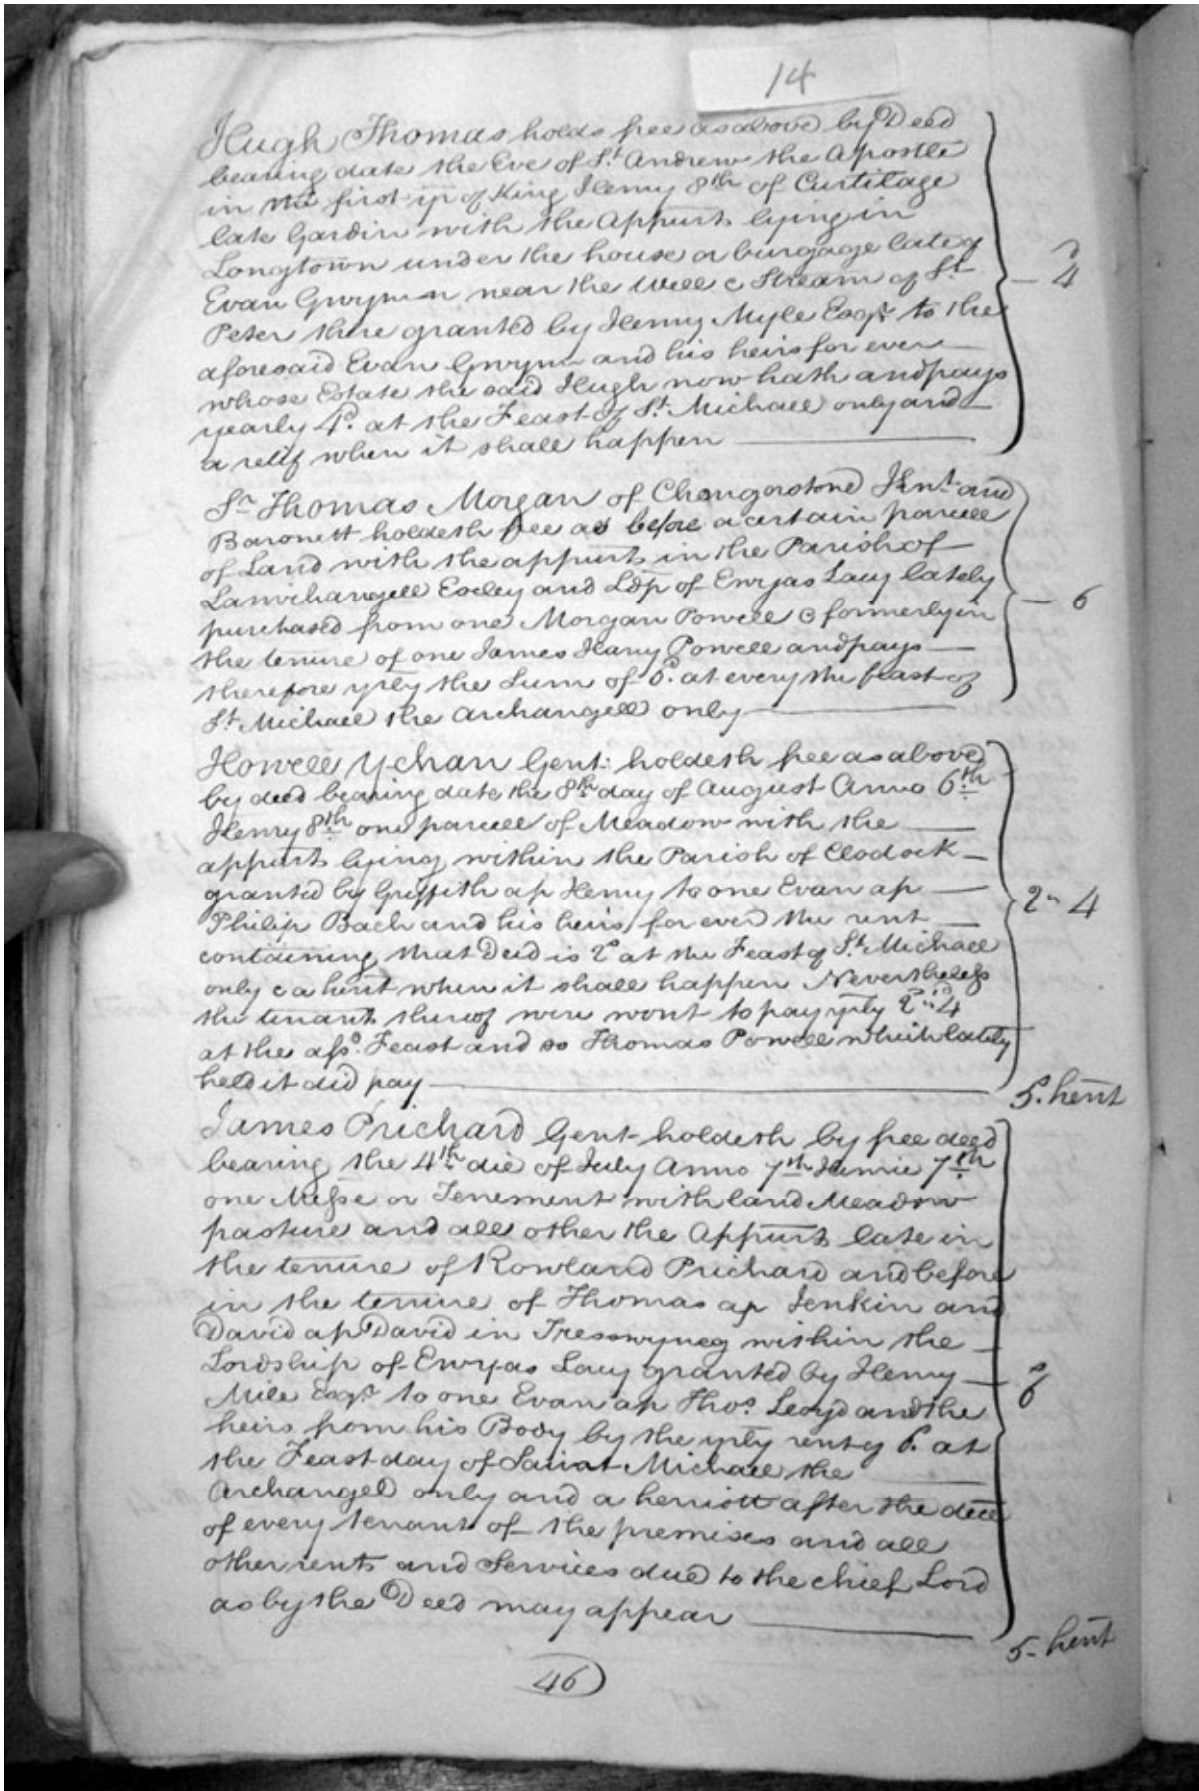 14
Hugh Thomas holds free as above by Deed
bearing date the Eve of St. Andrew the Apostle
in the first yr of King Henry 8th of Curtilage
late Gardin with the Appurts lying in
Longtown under the house or burgage late of
Evan Gwynn near the Well & Stream of St.
Peter there granted by Henry Myle Esqr. to the
aforesaid Evan Gwynn and his heirs for ever
whose Estate the said Hugh now hath and pays
yearly 4d. at the Feast of St. Michael only and
a relif when it shall happen
d
4
Sr Thomas Morgan of Knt. and
Baronett holdeth free as before a certain parcell
of Land with the appurts in the Parish of
Lanvihangell Eseley and Ldp of Ewyas Lacy lately
purchased from one Morgan Powell & formerly in
the tenure of one James Harry Powell and pays
therefore yrly the Sum of 6d. at every the feast of
St. Michael the Archangell only
6
Howell Ychan Gent: holdeth free as above
by deed bearing date the 8th day of August Anno 6th
Henry 8th one parcell of Meadow with the
appurts lying within the Parish of Clodock
granted by Griffith ap Henry to one Evan ap
Philip Bach and his heirs for ever the rent
containing that Deed is 2s at the Feast of St. Michael
only & a herit when it shall happen Nevertheless
the tenants thereof were wont to pay yrly 2s " 4d
at the afsd. Feast and so Thomas Powell which lately
held it did pay
2 " 4
5s. herit
James Prichard Gent holdeth by free deed
bearing the 4th die of July Anno 7th Henrie 7th
one Messe or Tenement with land Meadow
pasture and all other the Appurts late in
the tenure of Rowland Prichard and before
in the tenure of Thomas ap Jenkin and
David ap David in Tresswyneg within the
Lordship of Ewyas Lacy granted by Henry
Mile Esqr. to one Evan ap Thos. Leoyd and the
heirs from his Body by the yrly rent of 6d. at
the Feast day of Saint Michael the
Archangel only and a herriott after the dece
of every tenant of the premises and all
other rents and Services due to the chief Lord
as by the Deed may appear
d
6
5- herit
46